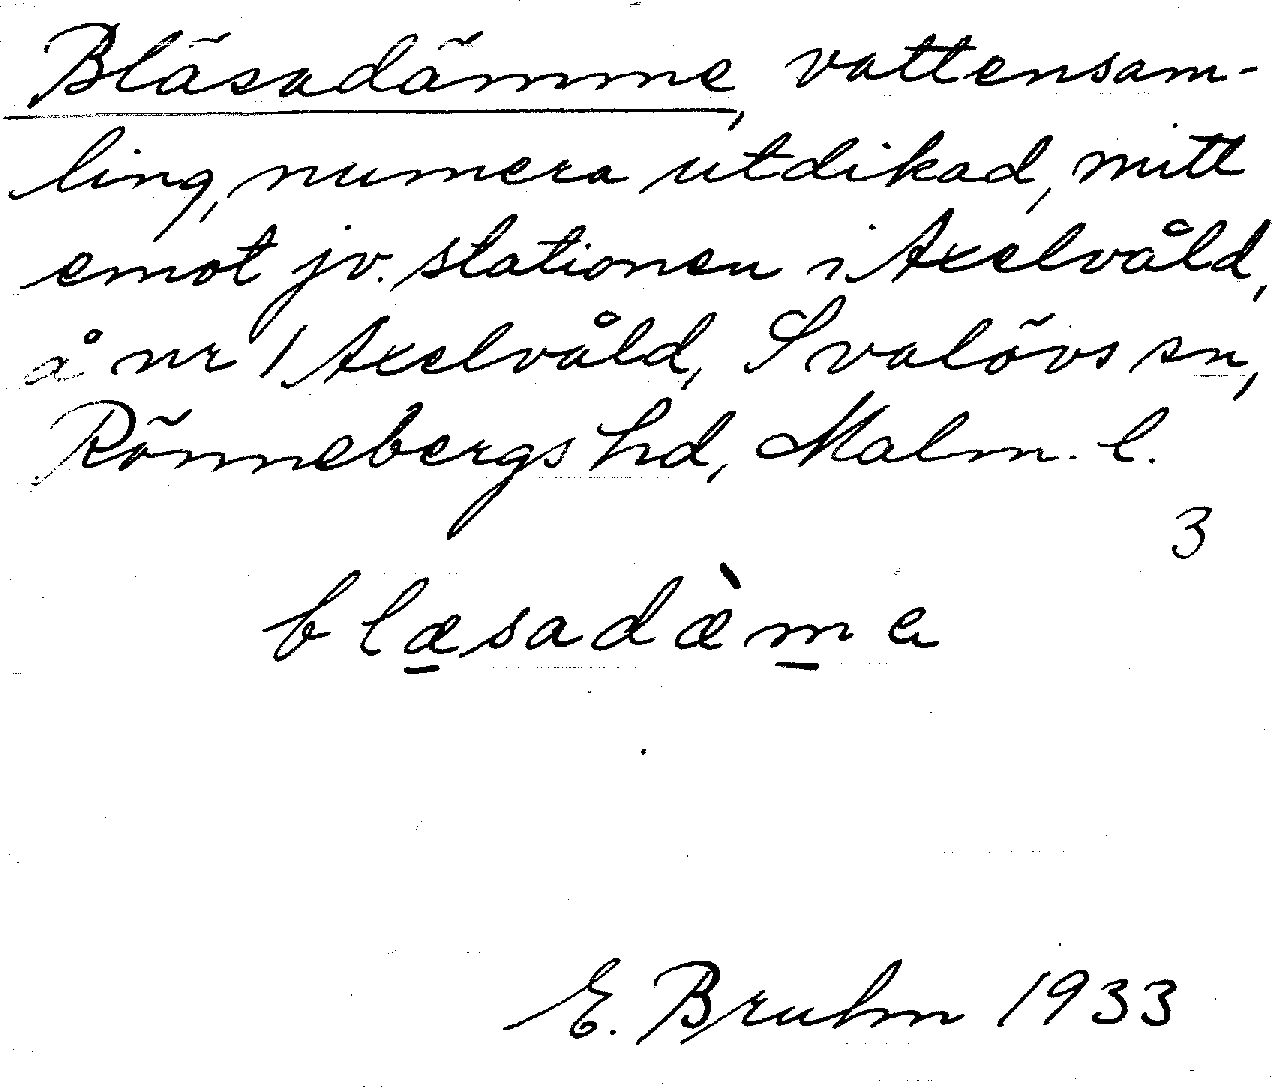 Bläsadämme, vattensam-
ling, numera utdikad, mitt
emot jv. stationen i Axelvåld,
å nr 1 Axelvåld, Svalövs sn,
Rönnebergs hd, Malm. l.
3
blæsadæ̀me
E. Bruhn 1933